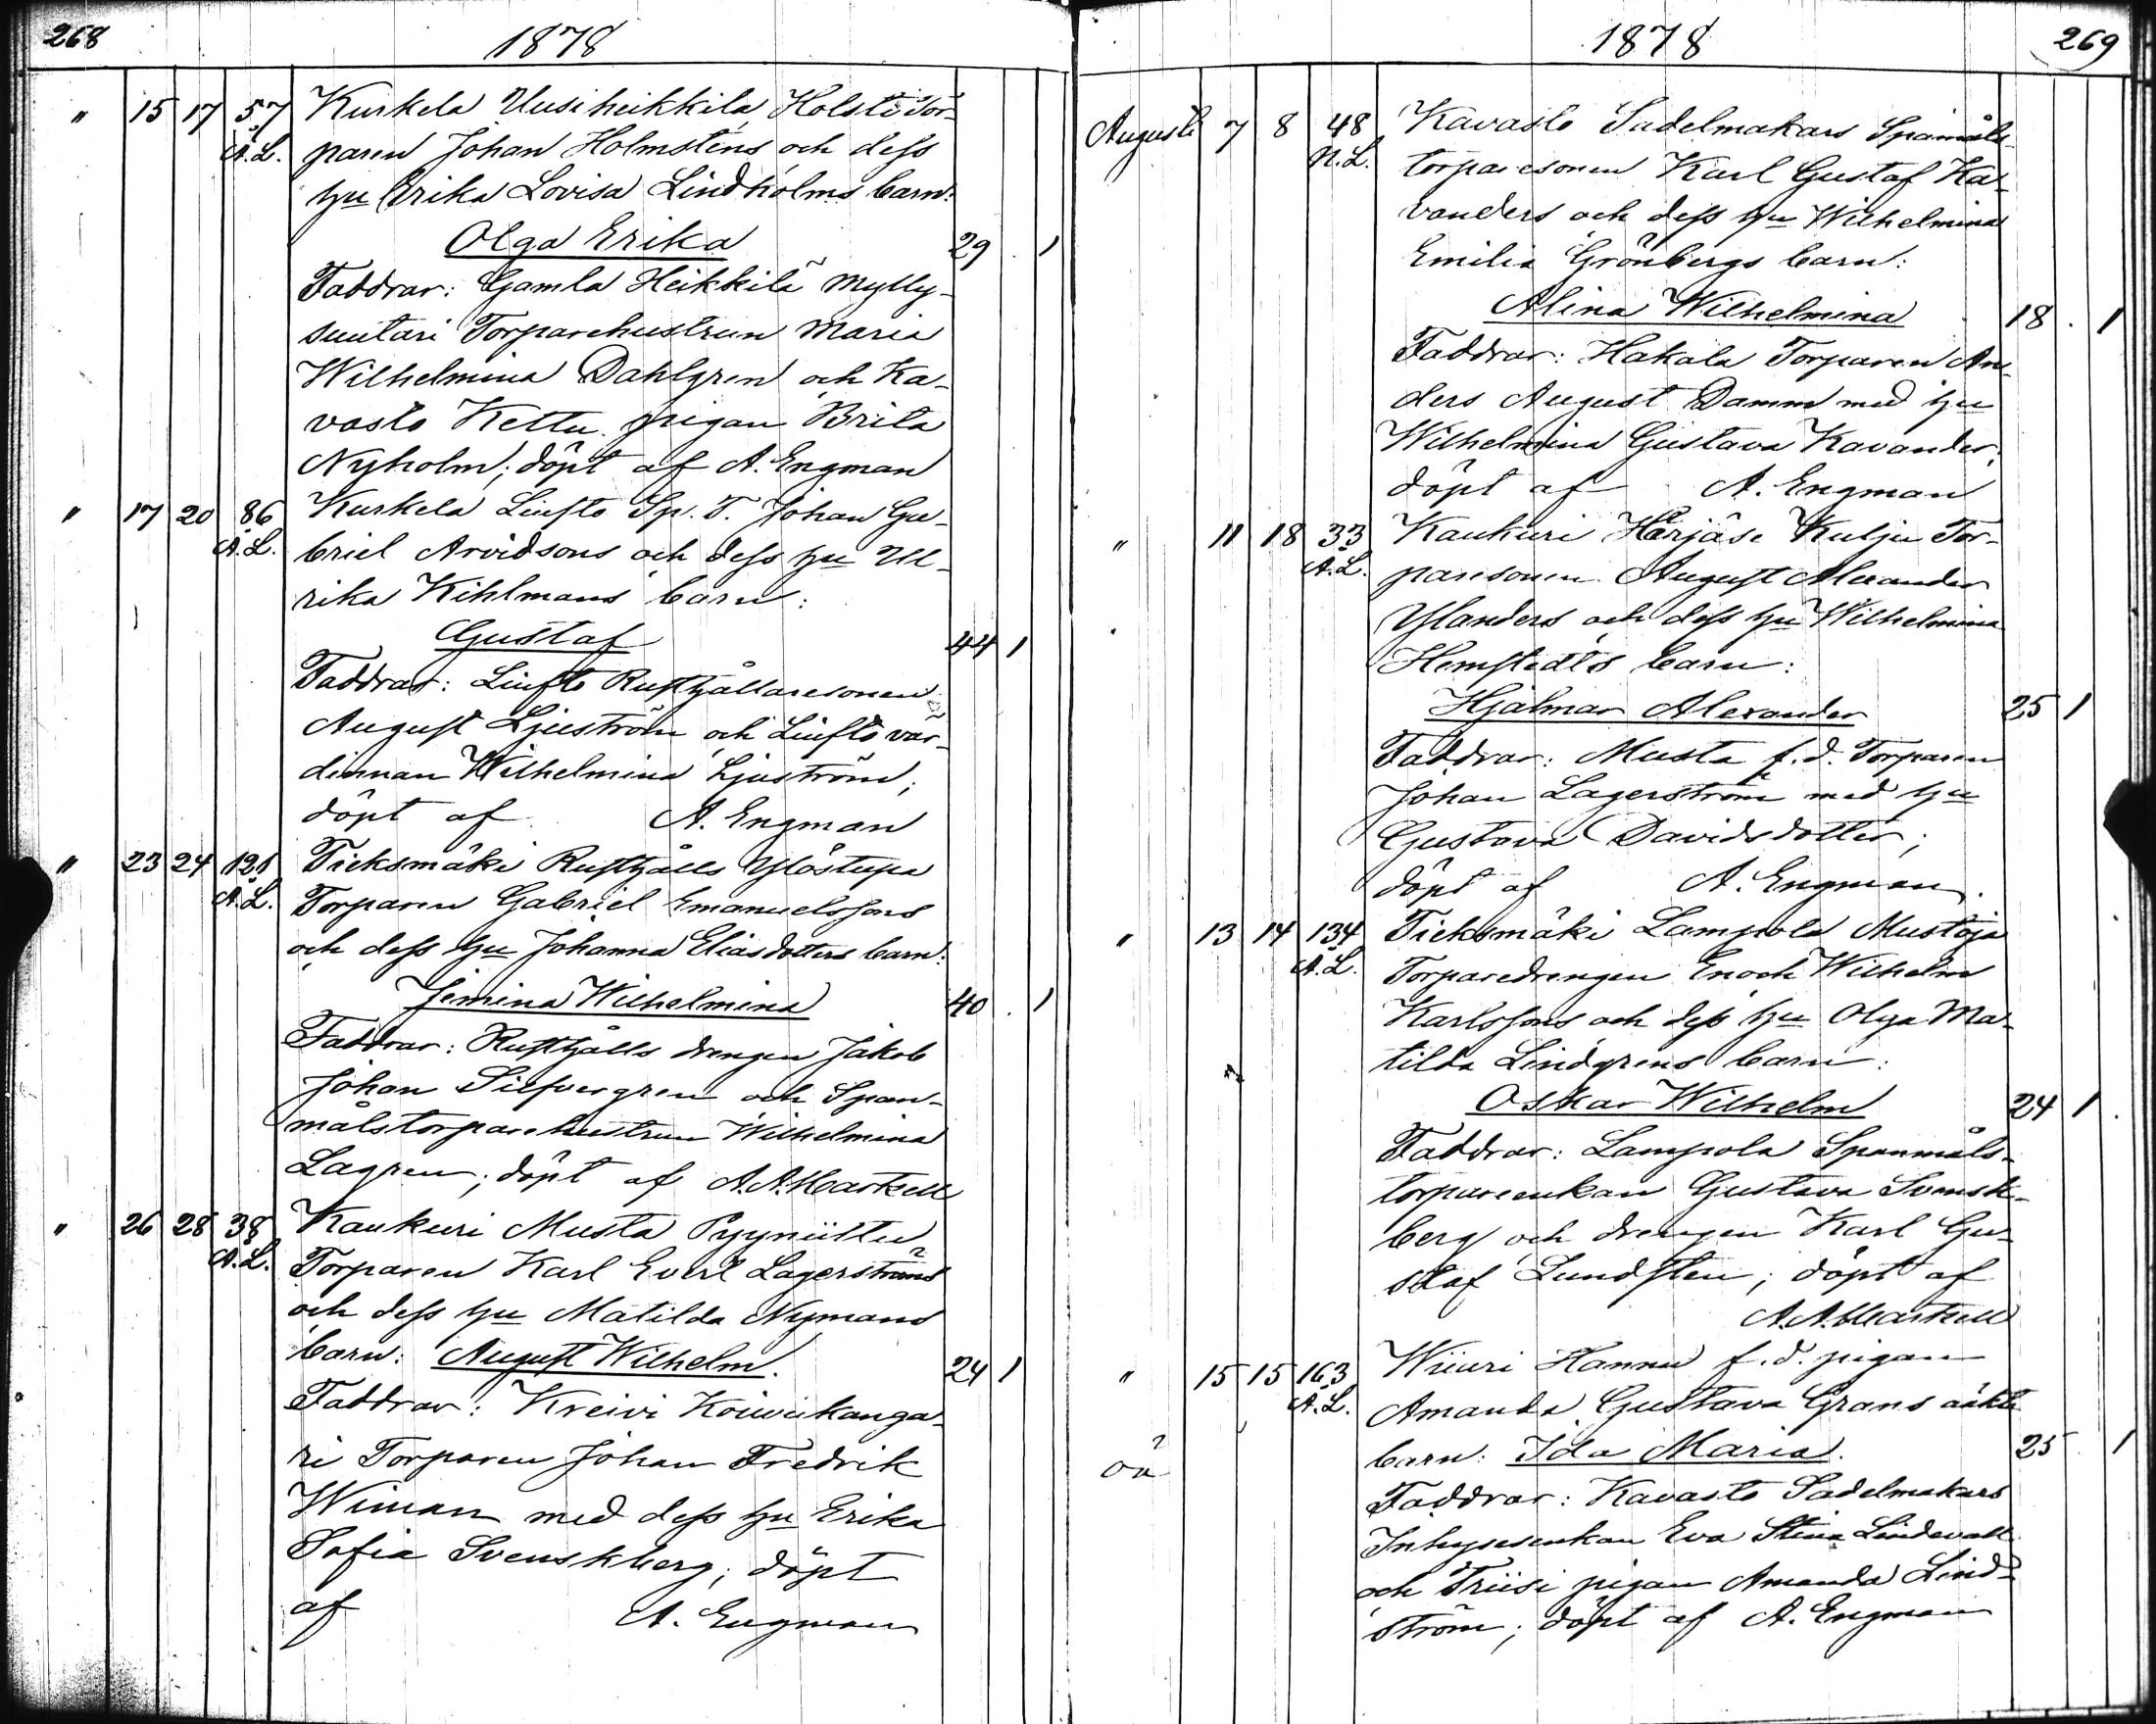 268
1878
" 15 17 57 Kurkela Uusiheikkilä Holsti Tor-
A.L. paren Johan Holmsténs och dess
hu Erika Lovisa Lindholms barn:
Olga Erika 29 1
Faddrar: Gamla Heikkilä Mylly-
suutari Torparehustrun Maria
Wilhelmina Dahlgren och Ka-
vasto Kettu pigan Brita
Nyholm; döpt af A. Engman
" 17 20 86 Kurkela Liufto Sp. T. Johan Ga-
A.L. briel Arvidsons och dess hu Ul-
rika Kihlmans barn:
Gustaf 44 1
Faddrar: Liufto Rusthållaresonen
August Ljuström och Liufto vär-
dinnan Wilhelmina Ljuström;
döpt af A. Engman
" 23 24 121 Tieksmäki Rusthålls Ylöstupa
A.L. Torparen Gabriel Emanuelssons
och dess hu Johanna Eliasdotters barn:
Jemina Wilhelmina 40 1
Faddrar: Rusthålls drengen Jakob
Johan Silfvergren och Span-
målstorparehustrun Wilhelmina
Lagren; döpt af A.A. Markell
" 26 28 38 Kaukuri Musta Pyyniittu
A.L. Torparen Karl Evert Lagerströms
och dess hu Matilda Nymans
barn: August Wilhelm. 24 1
Faddrar: Kreivi Koivukanga-
ri Torparen Johan Fredrik
Wiman med dess hu Erika
Sofia Svenskberg; döpt
af A. Engman
1878
269
Augusti 7 8 48 Kavasto Sadelmakars Spanmåls-
N.L. torparesonen Karl Gustaf Ka-
vanders och dess hu Wilhelmina
Emilia Grönbergs barn:
Alina Wilhelmina 18 1
Faddrar: Hakala Torparen An-
ders August Damm med hu
Wilhelmina Gustava Kavander;
döpt af A. Engman
" 11 18 33 Kaukuri Härjäse Kulju Tor-
A.L. paresonen August Alexander
Ylanders och dess hu Wilhelmina
Hemstedts barn:
Hjalmar Alexander 25 1
Faddrar: Musta f.d. Torparen
Johan Lagerström med hu
Gustava Davidsdotter;
döpt af A. Engman.
" 13 14 134 Tieksmäki Lampola Mustoja
A.L. Torparedrengen Enoch Wilhelm
Karlssons och dess hu Olga Ma-
tilda Lindgrens barn:
Oskar Wilhelm 24 1
Faddrar: Lampola Spanmåls-
torpareenkan Gustava Svensk-
berg och drengen Karl Gu-
staf Lundsten; döpt af
A.A. Markell
" 15 15 163 Wiuri Hannu f.d. pigan
A.L. Amanda Gustava Grans oäkta
oä barn: Ida Maria. 25 1
Faddrar: Kavasto Sadelmakars
Inhysesenkan Eva Stina Lindevall
och Triisi pigan Amanda Lind-
ström; döpt af A. Engman